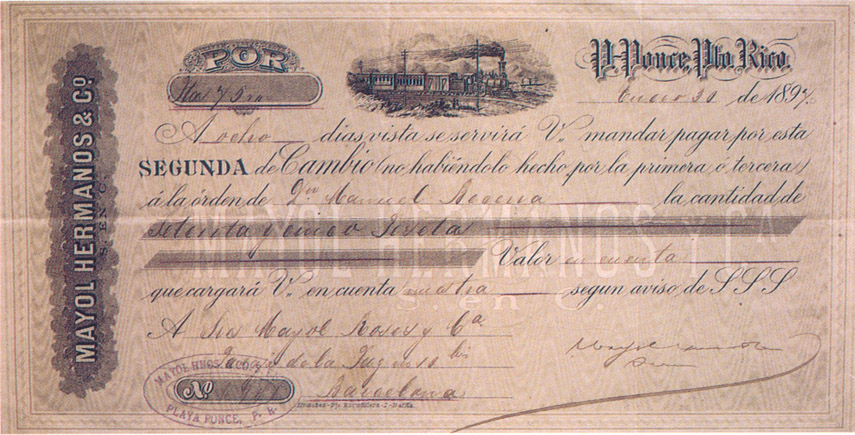 MAYOL HERMANOS & Cº
S. EN C.
POR
P. Ponce, Pto Rico
75
Enero 30 de 1897.
A ocho días vista se servirá V. mandar pagar por esta
SEGUNDA de Cambio (no habiéndolo hecho por la primera ó tercera)
á la órden de Dn Manuel la cantidad de
Setenta y cinco Peseta
MAYOL HERMANOS Y Ca
S. en C.
Valor en cuenta
que cargará V. en cuenta nuestra segun aviso de S S S
A Sres Mayol Roses y Ca.
de la
Barcelona
Nº
MAYOL HNOS
PLAYA PONCE, P. R.